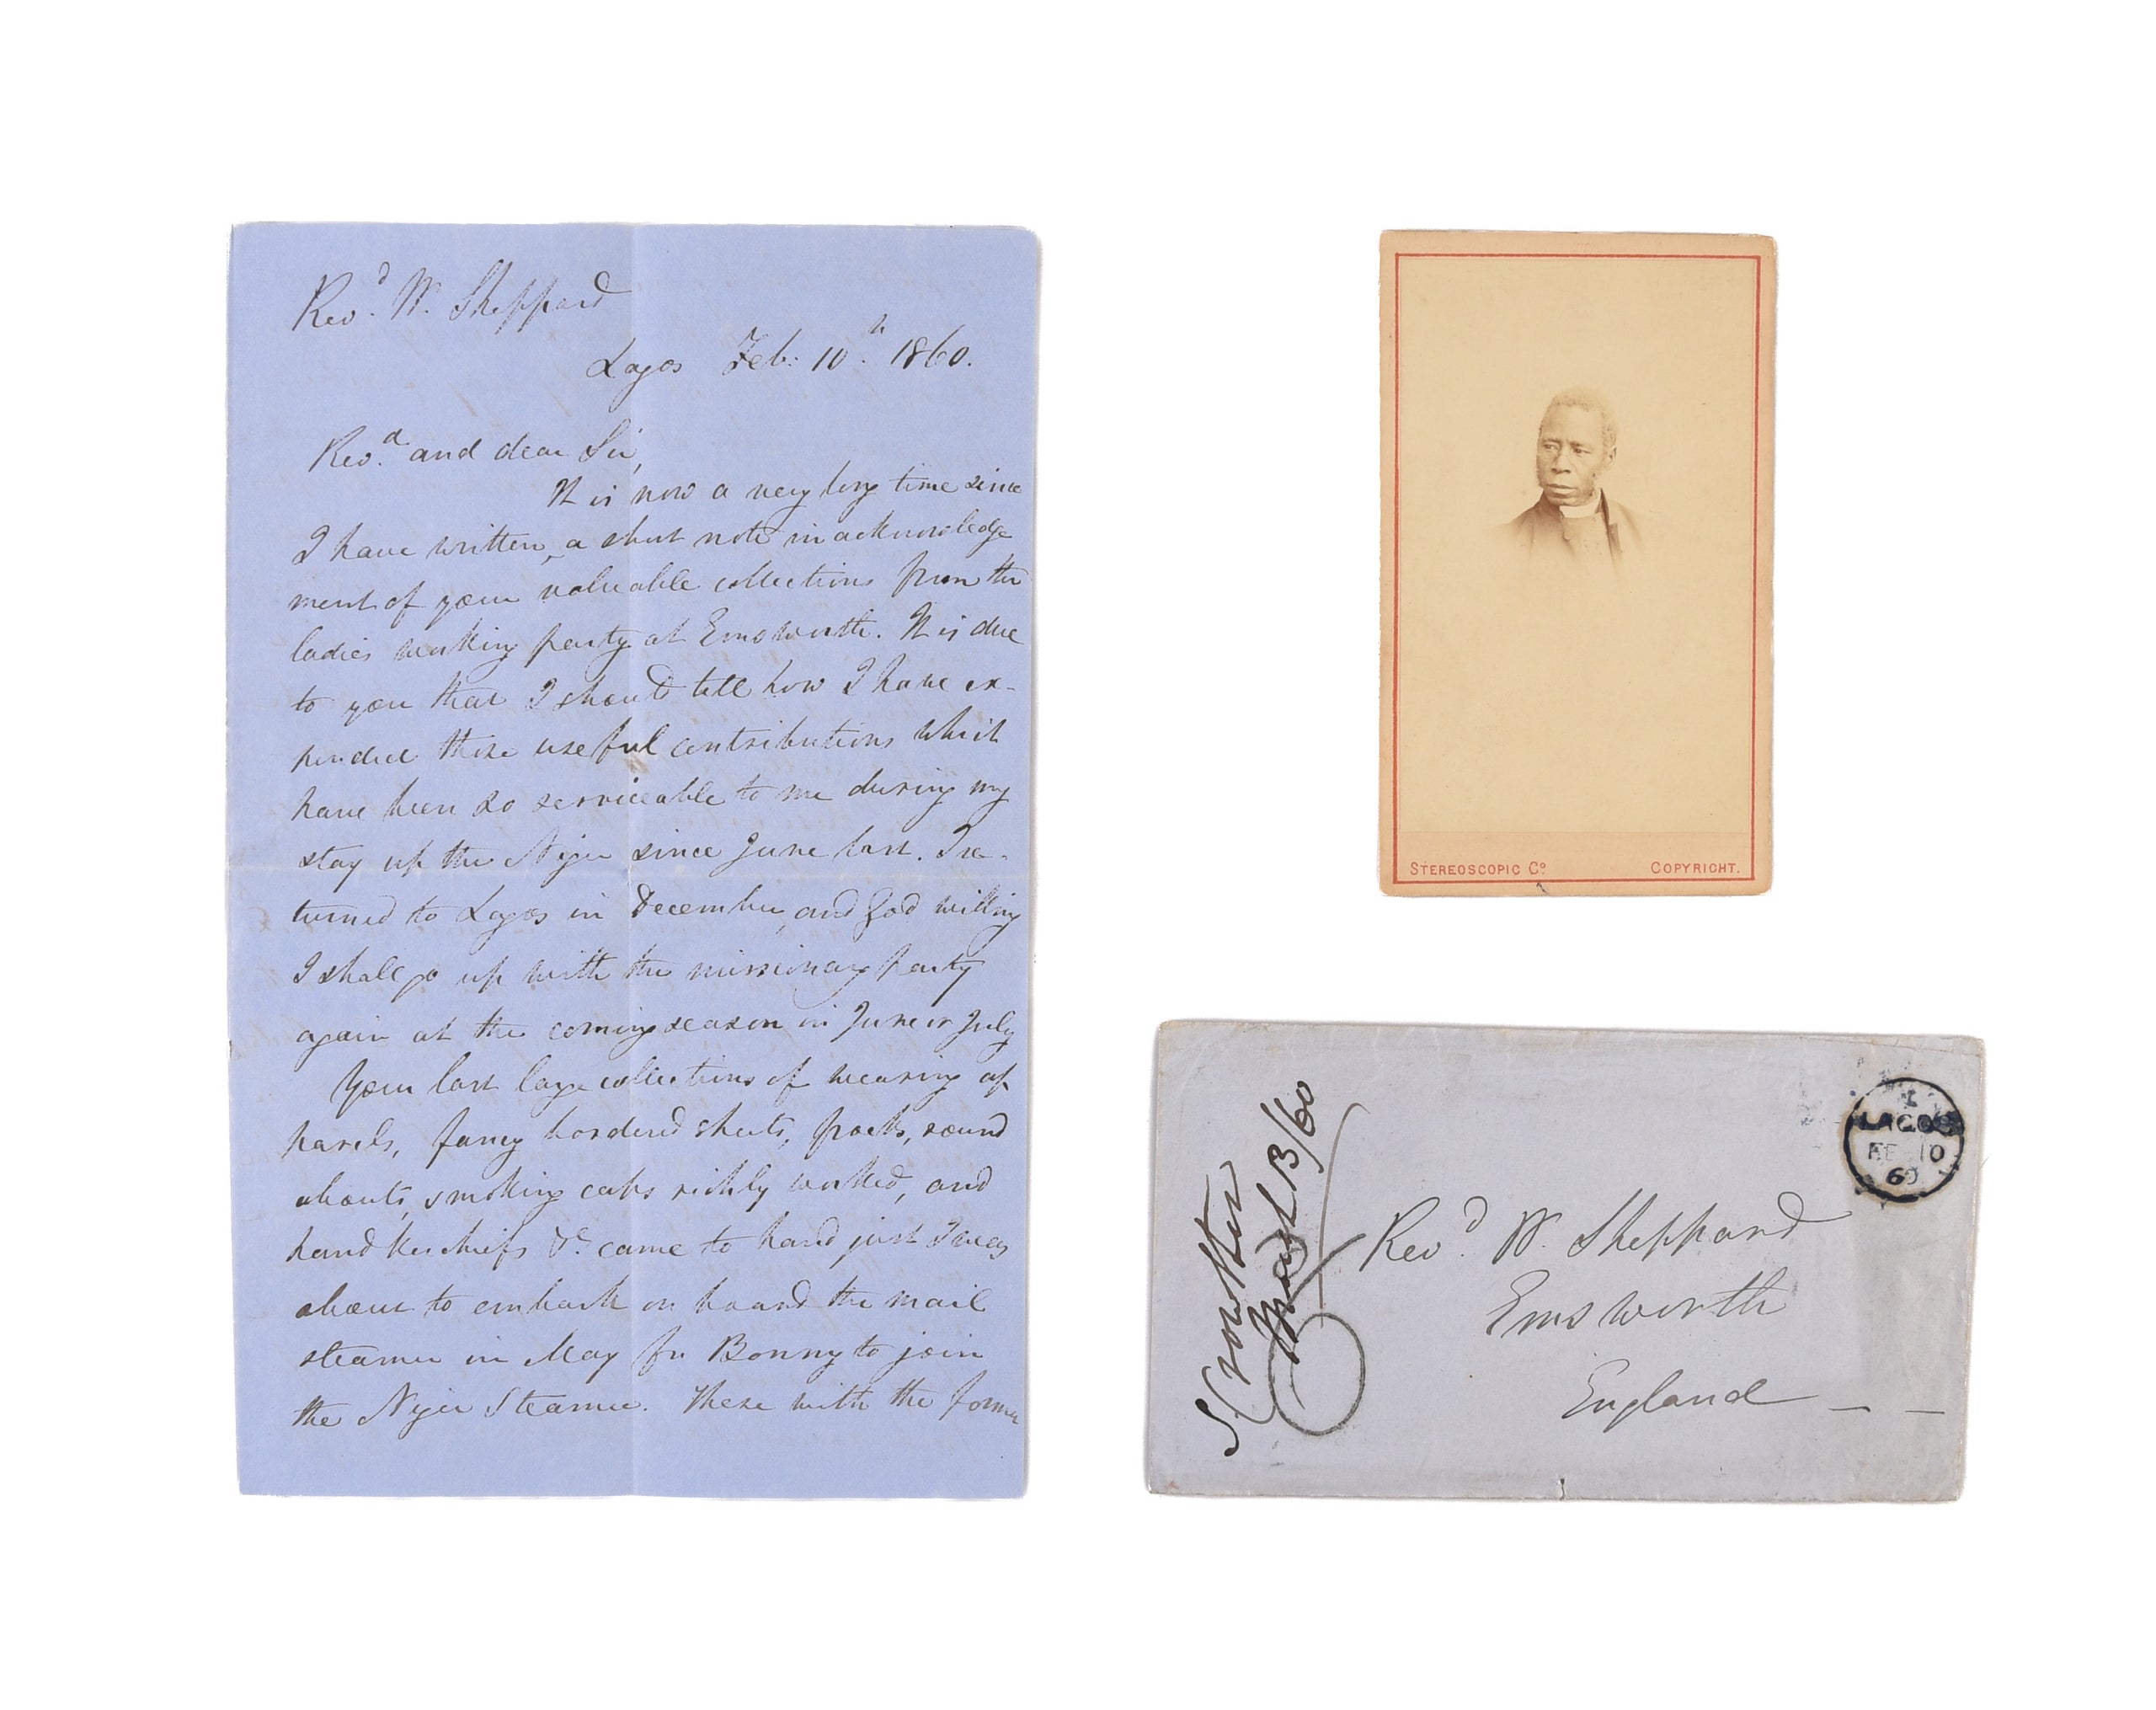 Revd. W. Sheppard
Lagos Feb: 10th 1860.
Revd. and dear Sir,
It is now a very long time since
I have written, a short note in acknowledge
ment of your valuable collections from the
ladies working party at Emsworth. It is due
to you that I should tell how I have ex-
pended those useful contributions which
have been so serviceable to me during my
stay up the Niger since June last. I re-
turned to Lagos in December, and God willing
I shall go up with the missionary party
again at the coming season in June or July
Your last large collections of wearing ap
parels, fancy bordered shirts, frocks, round
abouts, smoking caps richly worked, and
handkerchiefs &c. came to hand just I was
about to embark on board the mail
steamer in May for Bonny to join
the Niger Steamer. These with the former
STEREOSCOPIC Co. COPYRIGHT.
LAGOS
FE 10
60
S Crowther
13/60
Revd. W. Sheppard
Emsworth
England